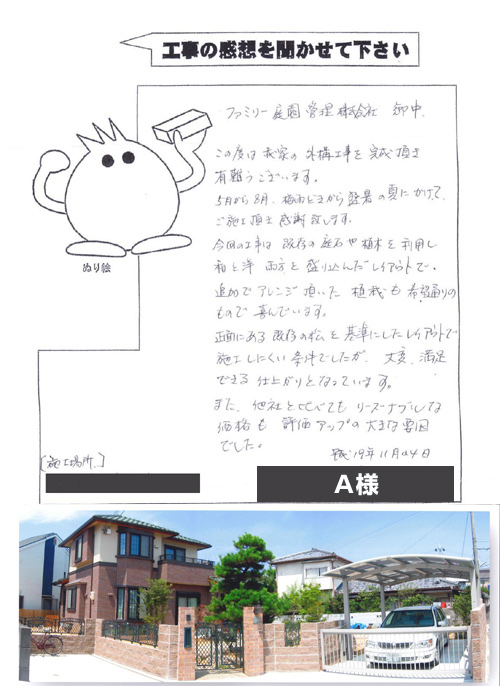 工事の感想を聞かせて下さい
ファミリー庭園管理株式会社 御中.
この度は我家の外構工事を完成頂き
有難うございます。
5月から8月、梅雨どきから盛暑の夏にかけて、
ご施工頂き感謝致します。
今回の工事は既存の庭石や植木を利用し
和と洋両方を盛り込んだレイアウトで、
追加でアレンジ頂いた植栽も希望通りの
もので喜んでいます。
正面にある既存の松を基準にしたレイアウトで
施工しにくい条件でしたが、大変、満足
できる仕上がりとなっています。
また、他社と比べてもリーズナブルな
価格も評価アップの大きな要因
でした。
平成19年11月24日
ぬり絵
[施工場所.]
A様